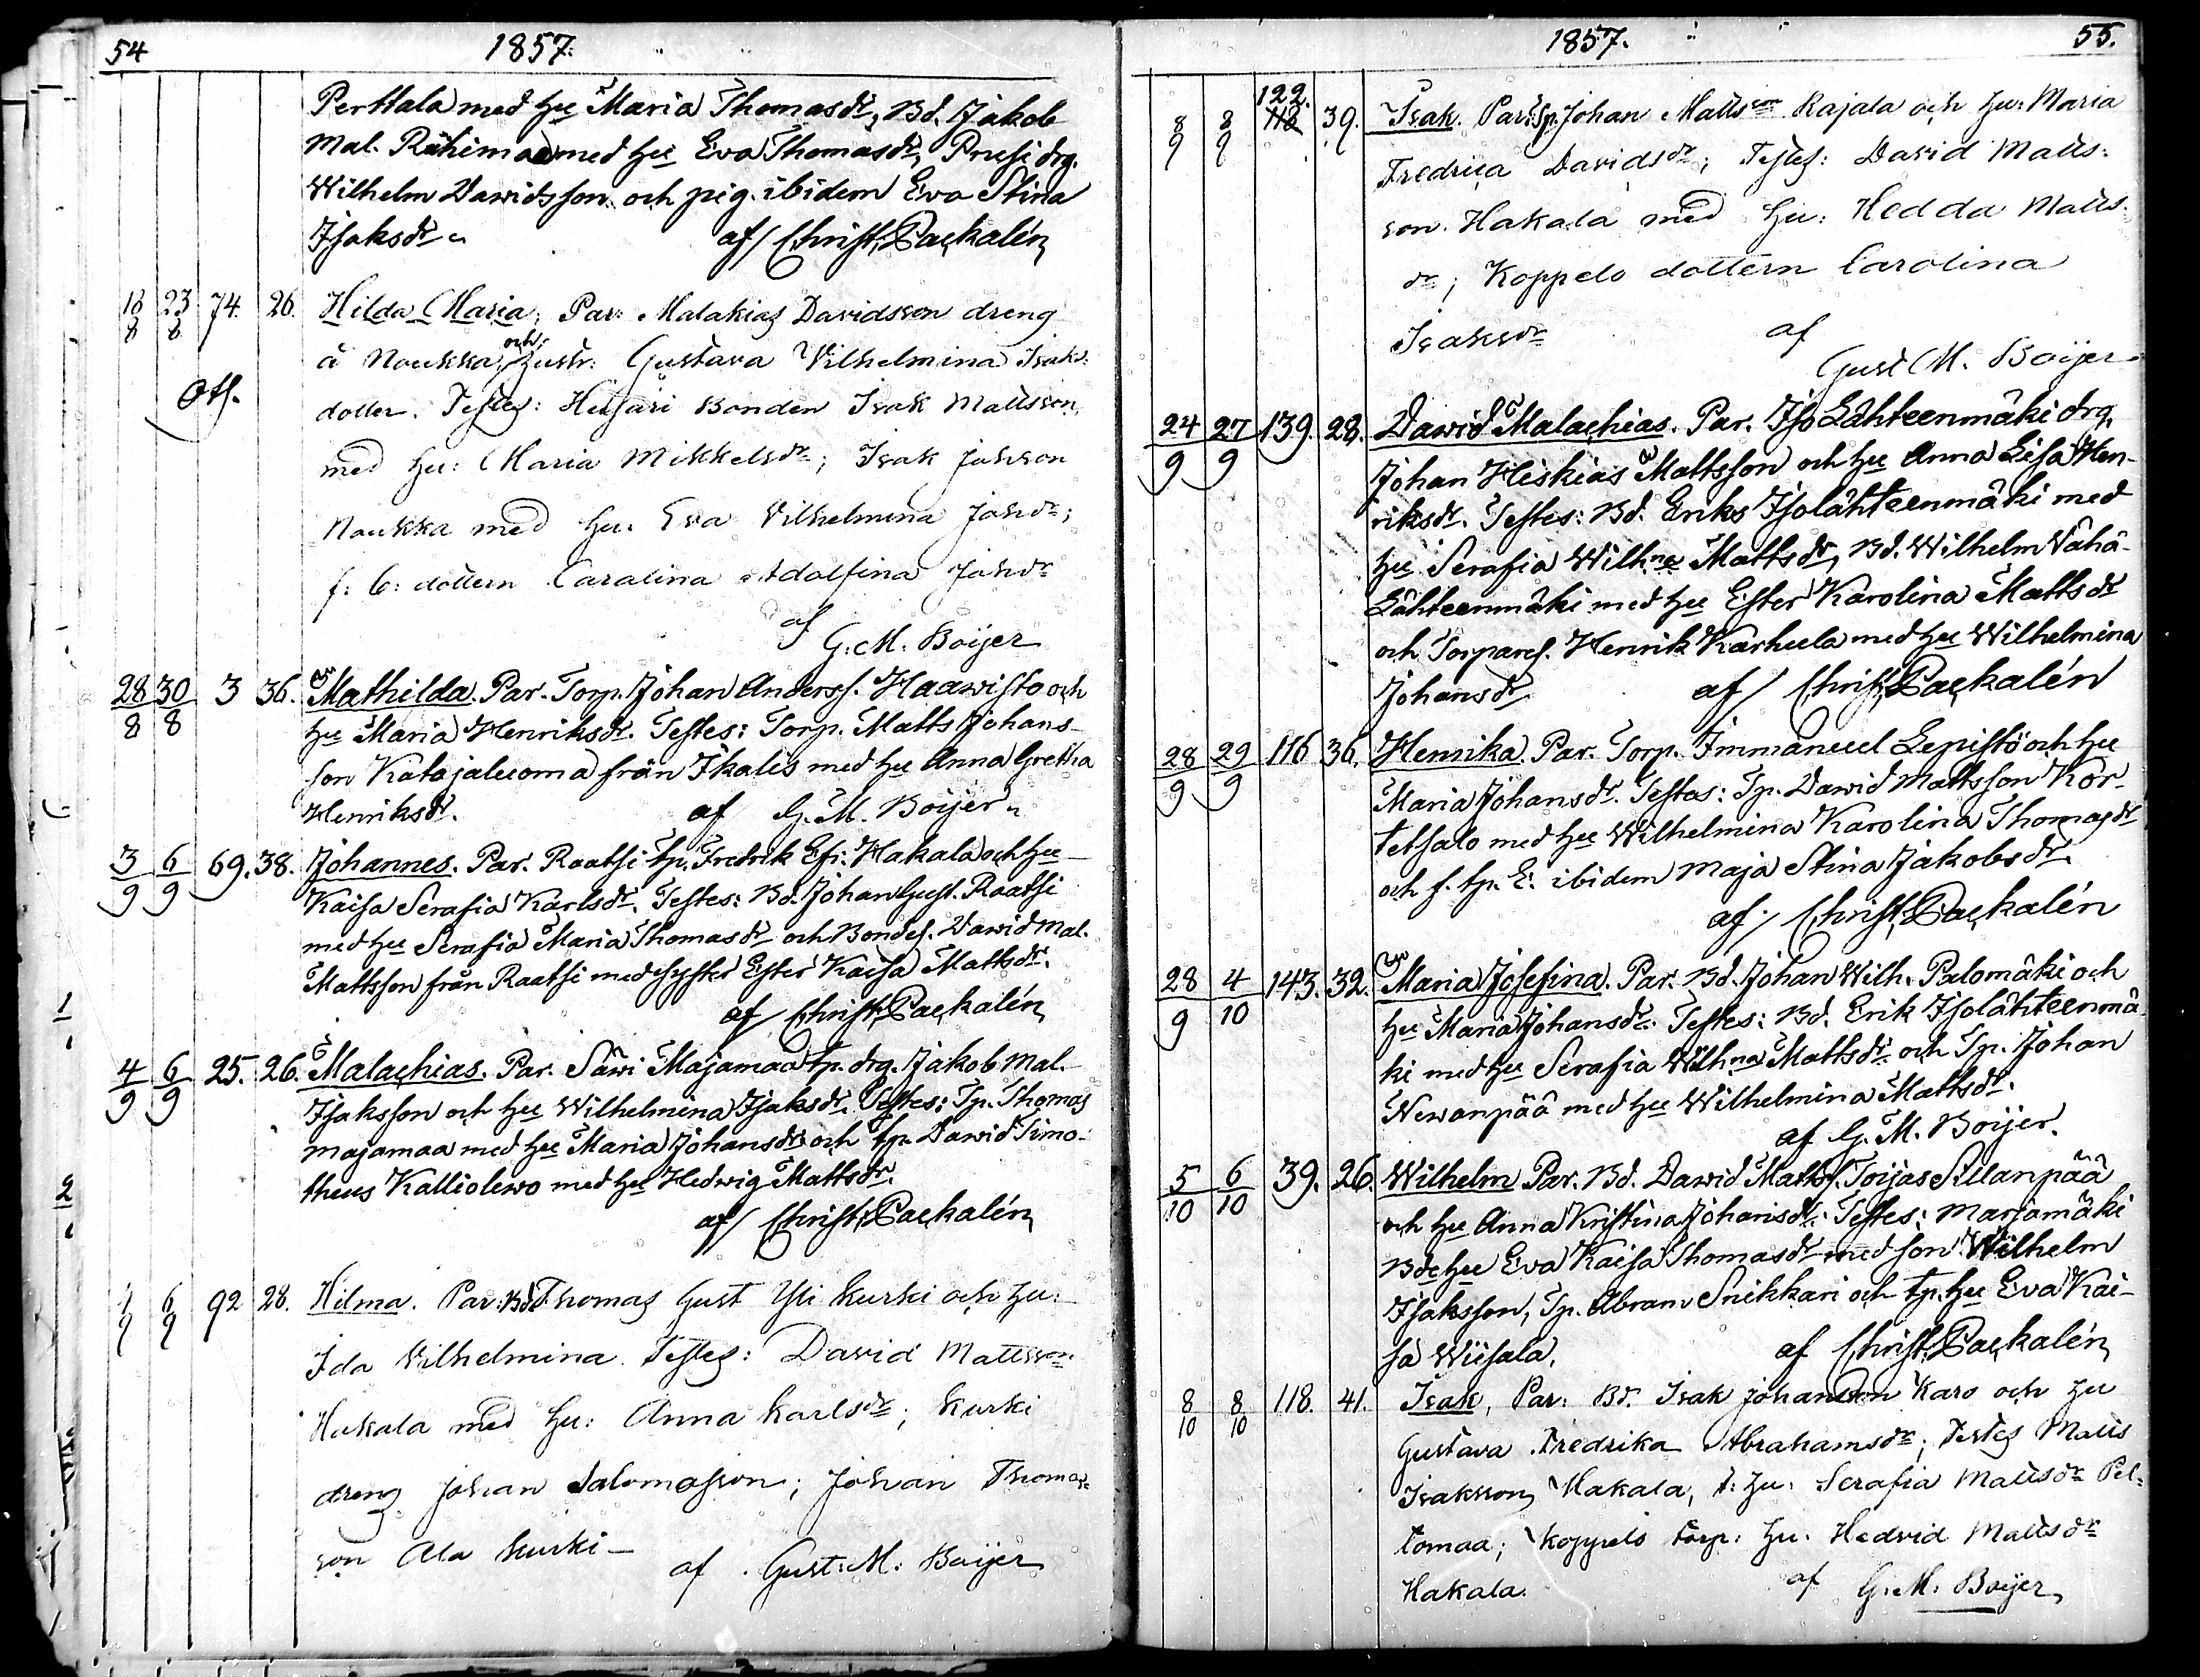 54
1857.
Perttala med hu Maria Thomasdr, Bd. Jakob
Mal. Röhimaa med hu Eva Thomasdr, Prusi drg.
Wilhelm Dawidsson och pig. ibidem Eva Stina
Isaksdr
af Christ. Paekalén
18/8 23/8 74. 26. Hilda Maria; Par: Malakias Davidsson dreng
å Noukka, och hustr: Gustava Vilhelmina Isaks-
Oth. dotter. Testes: Heisari Bonden Isak Mattsson
med hu: Maria Mikkelsdr; Isak Johsson
Noukka med hu: Eva Vilhelmina Johsdr;
f: b: dottern Carolina Adolfina Johsdr
af
G. M. Boijer
28/8 30/8 3 36. Mathilda. Par. Torp. Johan Anderss. Haawisto och
hu Maria Henriksdr. Testes: Torp. Matts Johans-
son Katajaluoma från Ikalis med hu Anna Gretha
Henriksdr. af G. M. Boijer
3/9 6/9 69. 38. Johannes. Par. Raatsi tp. Fredrik Efr. Hakala och hu
Kaisa Serafia Karlsdr. Testes: Bd. Johan Gust. Raatsi
med hu Serafia Maria Thomasdr och Bondes. Dawid Mal.
Mattsson från Raatsi med syster Ester Kaisa Mattsdr.
af Christ. Paekalén
4/9 6/9 25. 26. Malachias. Par. Säwi Majamaa tp. drg. Jakob Mal.
Isaksson och hu Wilhelmina Isaksdr. Testes: Tp. Thomas
Majamaa med hu Maria Johansdr och tp. Dawid Timo-
theus Kalliolewo med hu Hedwig Mattsdr.
af Christ. Paekalén
1/9 6/9 92 28. Hilma. Par: Bd Thomas Gust Yli Kurki och hu:
Ida Vilhelmina. Testes: David Mattsson
Hakala med hu: Anna Karlsdr; Kurki
dreng Johan Salomosson; Johan Thomas-
son Ala Kurki —
af Gust: M: Boijer
1857.
55.
8/9 8/9 122. 118 39. Isak. Par: Tp. Johan Mattsson Rajala och hu: Maria
Fredrica Davidsdr; Testes: David Matts-
son Hakala med hu: Hedda Matts-
dr; Koppelo dottern Carolina
Isaksdr af
Gust M. Boijer
24/9 27/9 139. 28. Dawid Malachias. Par. Iso Lähteenmäki drg.
Johan Heskias Mattsson och hu Anna Lisa Hen-
riksdr. Testes: Bd. Eriks Isolähteenmäki med
hu Serafia Wilhna Mattsdr, Bd. Wilhelm Vähä-
Lähteenmäki med hu Ester Karolina Mattsdr
och Torpares. Henrik Karhula med hu Wilhelmina
Johansdr af Christ. Paekalén
28/9 29/9 116 36. Henrika. Par. Torp. Immanuel Lepistö och hu
Maria Johansdr. Testes: Tp. Dawid Mattsson Kor-
tetsalo med hu Wilhelmina Karolina Thomasdr
och f. tp. E. ibidem Maja Stina Jakobsdr.
af Christ. Paekalén
28/9 4/10 143. 32. Maria Josefina. Par. Bd. Johan Wilh. Palomäki och
hu Maria Johansdr. Testes: Bd. Erik Isolähteenmä-
ki med hu Serafia Wilhna Mattsdr och Tp. Johan
Newanpää med hu Wilhelmina Mattsdr.
af G. M. Boijer.
5/10 6/10 39. 26. Wilhelm Par. Bd. Dawid Matts. Toijas Sillanpää
och hu Anna Kristina Johansdr. Testes: Marjamäki
Bde hu Eva Kaisa Thomasdr med son Wilhelm
Isaksson, Tp. Abram Snikkari och tp. hu Eva Kai-
sa Wiisala. af Christ. Paekalén
8/10 8/10 118. 41. Isak, Par: Bd. Isak Johansson Karo och hu
Gustava Fredrika Abrahamsdr; Testes Matts
Isaksson Hakala, t: hu: Serafia Mattsdr Pel-
tomaa; Koppelo torp: hu: Hedvid Mattsdr
Hakala. af G. M: Boijer